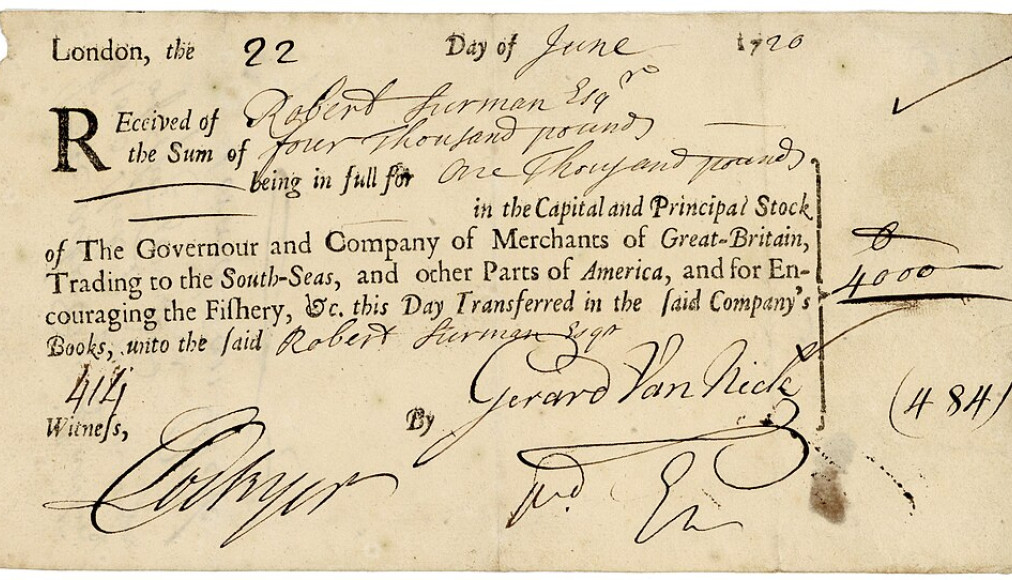 London, the 22 Day of June 1720
REceived of Robert Surman Esqr
the Sum of four Thousand pounds
being in full for One Thousand pounds
in the Capital and Principal Stock
of The Governour and Company of Merchants of Great-Britain,
Trading to the South-Seas, and other Parts of America, and for En-
couraging the Fiſhery, &c. this Day Transferred in the ſaid Company's
Books, unto the ſaid Robert Surman Esqr
£
4000
414
Gerard Van Neck
(484)
Witneſs, By
Lockyer